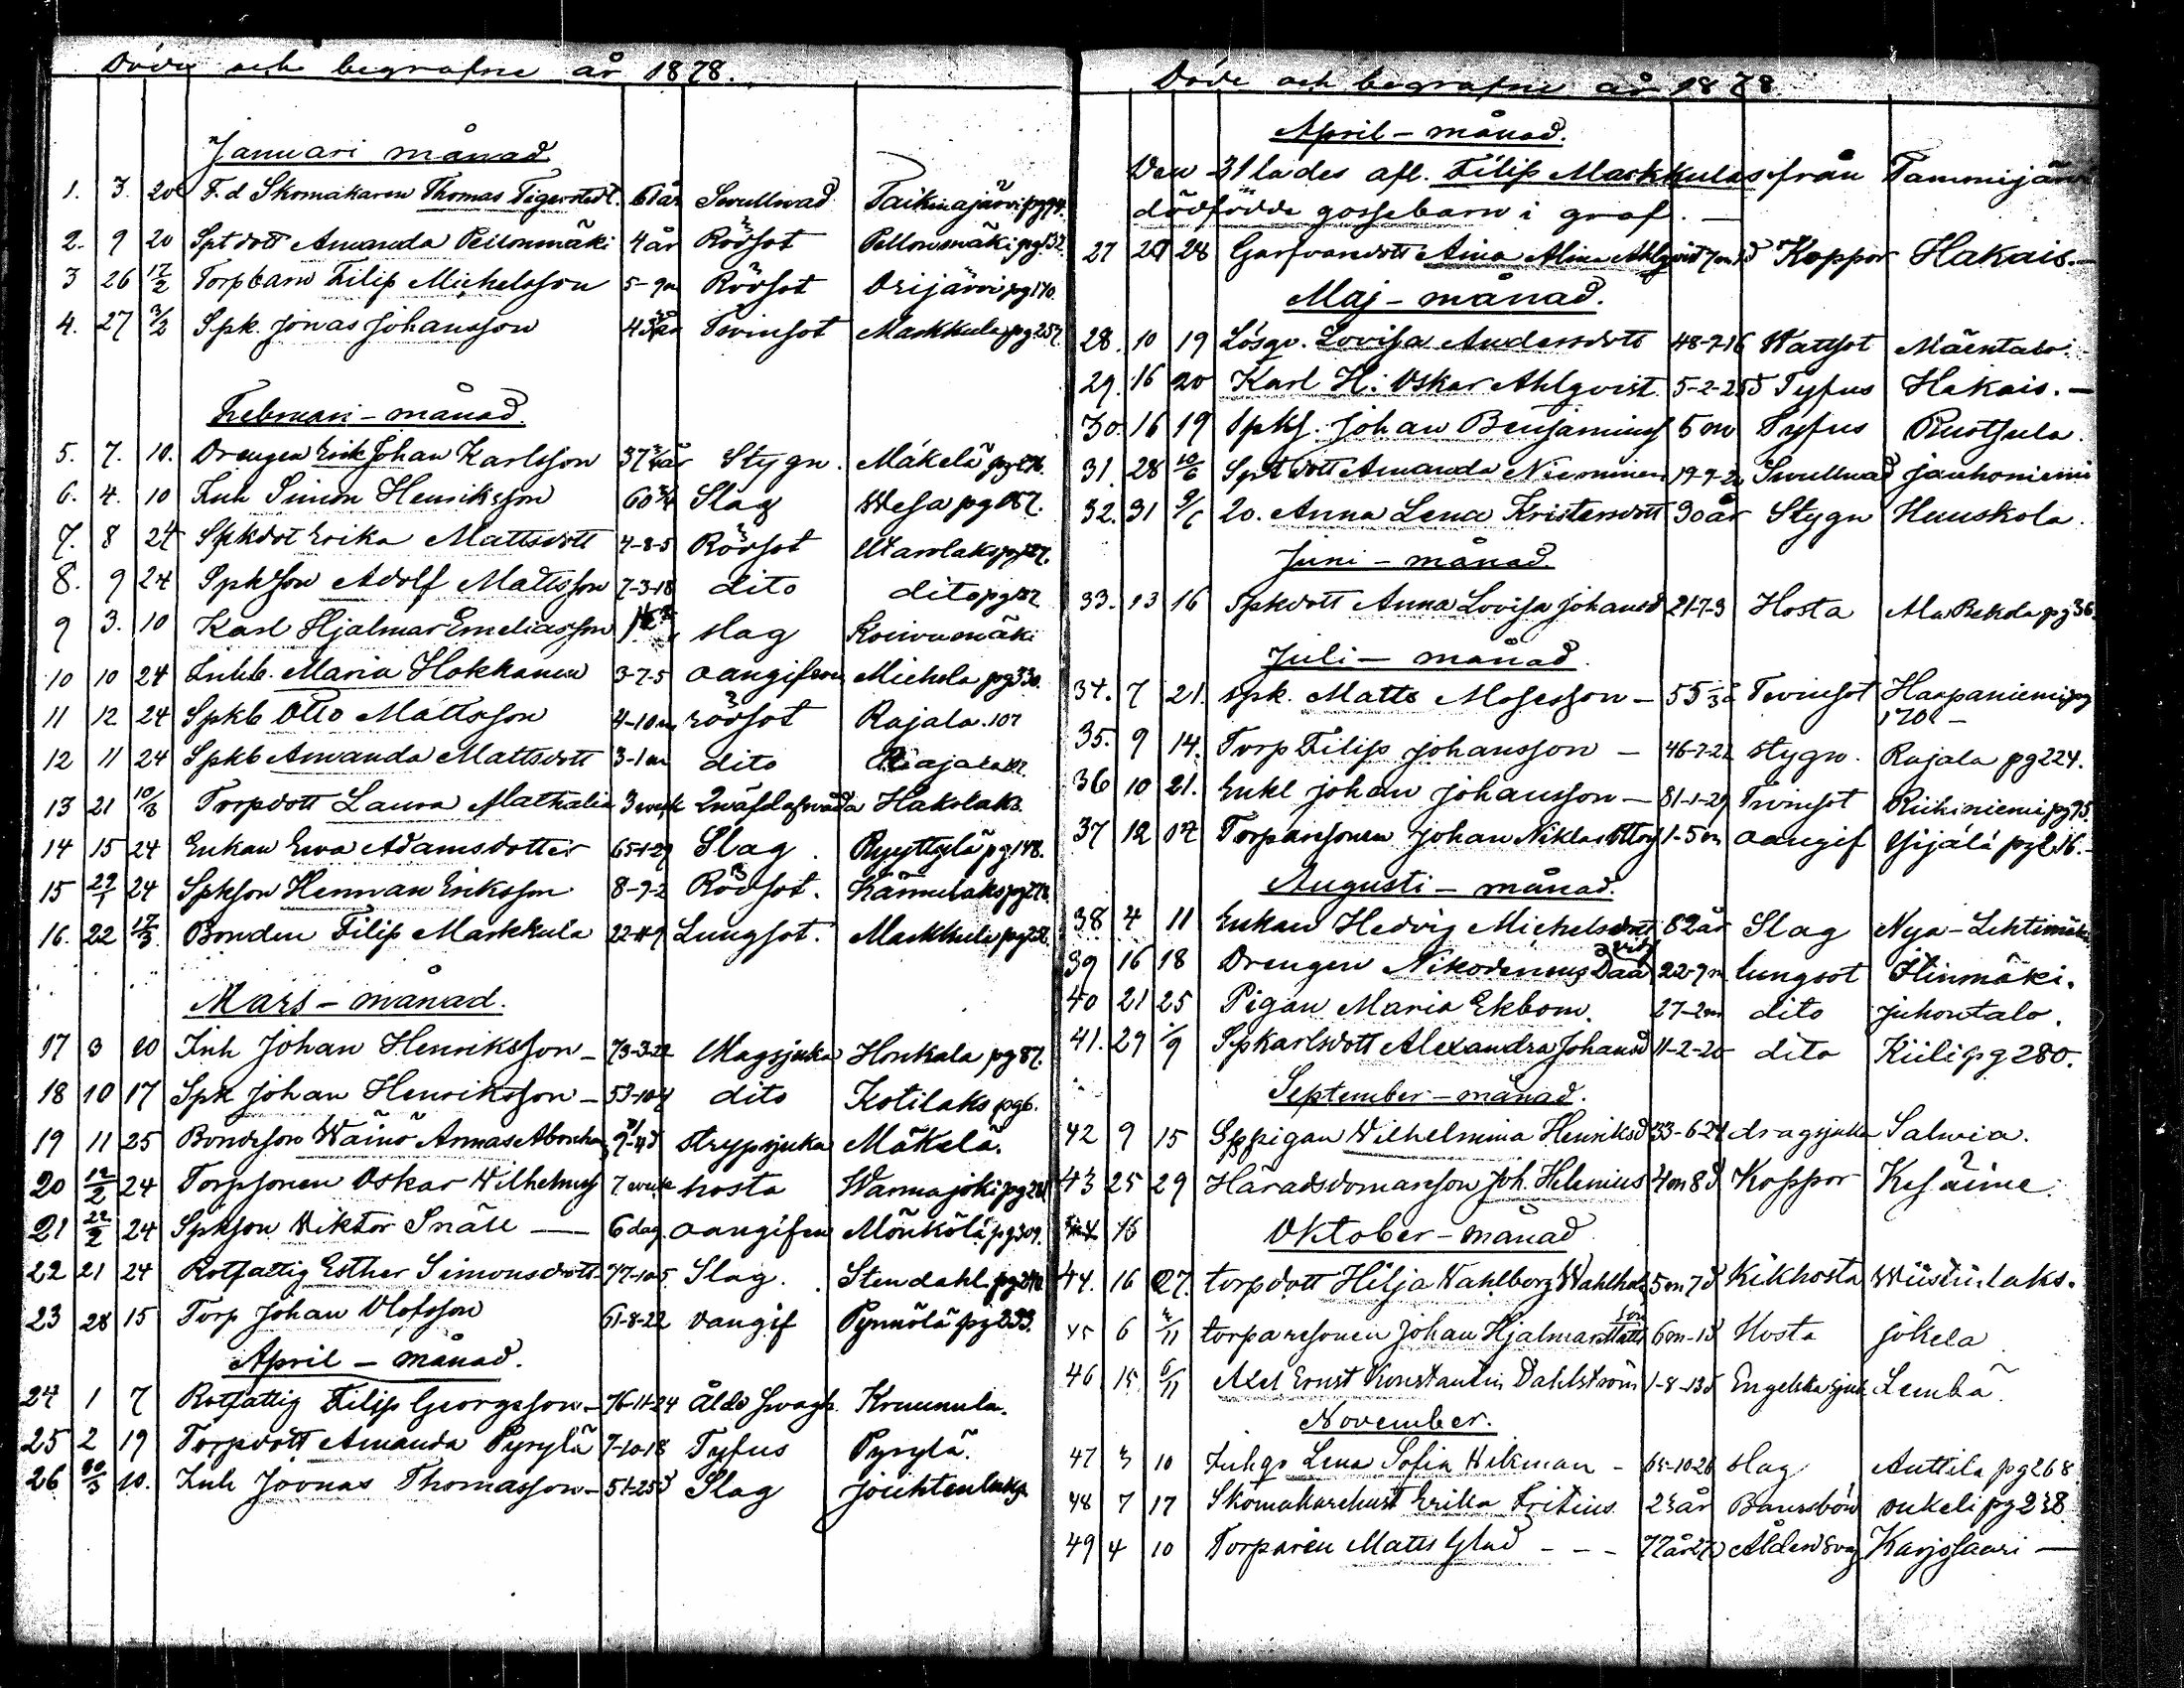 Döde och begrafne år 1878.
Januari månad
1. 3. 20 F. d Skomakaren Thomas Tigerstedt. 61 år Swullnad Taikinajärvi pg 94.
2. 9 20 Spt dott Amanda Peltonmäki 4 år Rödsot pg 132.
3 26 17/2 Torpbarn Filip Michelsson 5-9m Rödsot Orijärvi pg 170.
4. 27 3/2 Spk. Jonas Johansson Twinsot Markkula pg 257.
Februari - månad.
5. 7. 10. Drengen Erik Johan Karlsson 37 Stygn. Mäkelä pg
6. 4. 10 Inh Simon Henriksson 60 3/4 Slag Wesa pg 157.
7. 8 24 Spkdot Erika Mattsdott 4-8-5 Rödsot
8. 9 24 Spkson Adolf Mattsson 7-3-18 dito dito pg
9 3. 10 Karl Hjalmar Emeliasson slag Koivumäki
10 10 24 Inhb. Maria Hokkanen 3-7-5 oangifven Michola pg 330.
11 12 24 Spkb Otto Mattsson 4-10m rödsot Rajala. 107
12 11 24 Spkb Amanda Mattsdott 3-1m dito Rajala
13 21 10/3 Torpdott Laura Mathalia 3 veck Hakolaks.
14 15 24 Enkan Ewa Adamsdotter 65-1-29 Slag. Ryyttylä pg 148.
15 29/1 24 Spkson Herman Eriksson 8-9-2 Rödsot. Kännelaks pg 278.
16. 22 17/3 Bonden Filip Markkula Lungsot. Markkula pg
Mars - månad.
17 3 10 Inh Johan Henriksson - 73-3-22 Magsjuka Honkala pg 87.
18 10 17 Spk Johan Henriksson - 53-10-4 dito Kotilaks pg 6.
19 11 25 Bondeson Wäinö Annas strypsjuka Mäkelä.
20 12/2 24 Torpsonen Oskar Wilhelmss 7 veck hosta Warmajoki pg
21 22/2 24 Spkson Wiktor Snäll — 6 dag. oangifen Mönkölä pg 309.
22 21 24 Rotfattig Esther Simonsdott 77-10-5 Slag. Stendahl pg
23 28 15 Torp Johan Olofsson 61-8-22 oangif Pynnölä pg 233.
April - månad.
24 1 7 Rotfattig Filip Georgsson - 76-11-24 Ålds swagh Krummula.
25 2 19 Torpdott Amanda Pyrylä 7-10-18 Tyfus Pyrylä.
26 30/3 10. Inh Joonas Thomasson - 51-25d Slag
Döde och begrafne år 1878
April - månad.
Den 21 lades afl. Filip Markkulas från Tammijärvi
dödfödde gossebarn i graf. —
27 28 Garfvaredott Aina Alina Ahlqvist Koppor Hakais. -
Maj - månad.
28. 10 19 Lösqv. Lovisa Andersdott 48-7-16 Wattsot Mäentalo.
29. 16 20 Karl H: Oskar Ahlqvist. 5-2-25d Tyfus Hakais. -
30. 16 19 Spks. Johan Benjaminss 5 m Tyfus Ruotsula.
31. 28 10/6 Spt dott Amanda Nieminen Swullnad Jauhoniemi
32. 31 9/6 20. Anna Lena Kristersdott 30 år Stygn Huuskola.
Juni - månad.
33. 13 16 Spkdott Anna Lovisa Johansd 21-7-3 Hosta Ala Rekola pg 36.
Juli - månad.
34. 7 21. spk. Matts Mosesson - 55 Twinsot Haapaniemi pg
170 -
35. 9 14. Torp Filip Johansson - 46-7-22 stygn. Rajala pg 224.
36 10 21. Enkl Johan Johansson - 81-1-29 Twinsot Riihiniemi pg 75.
37 12 14 Torparesonen Johan Niklas Ottos 1-5m oangif Yijälä pg 216. -
Augusti - månad.
38 4 11 Enkan Hedvig Michelsdott 82 år Slag Nya-Lehtimäki.
39 16 18 Drengen Nikodemus Davids 22-9m lungsot Hinmäki.
40 21 25 Pigan Maria Ekbom. 27-2m dito Juhontalo.
41. 29 1/9 Spkarlsdott Alexandra Johansd 11-2-20 dito Kiili pg 280.
September - månad.
42 9 15 Sppigan Wilhelmina Henriksd 33-6-24 dragsjuka Salmia.
43 25 29 Häradsdomareson Joh. Helenius 4m 8d Koppor
15
Oktober - månad
44. 16 27. torpdott Hilja Wahlberg Wahlholm 5m 7d Kikhosta Wiisiinlaks.
45 6 3/11 torparesonen Johan Hjalmar Mattsson 6m-1d Hosta Jokela
46 15. 6/11 Axel Ernst Konstantin Dahlström 1-8-13d Engelska sjuk Lemba
November.
47 3 10 Inhqv Lena Sofia Wikman - 65-10-26 slag Anttila pg 268
48 7 17 Skomakarehust Erika Fritius 23 år Barnsbörd pg 238
49 4 10 Torparen Matts Glad - - - Ålderd swag Karjosaari —